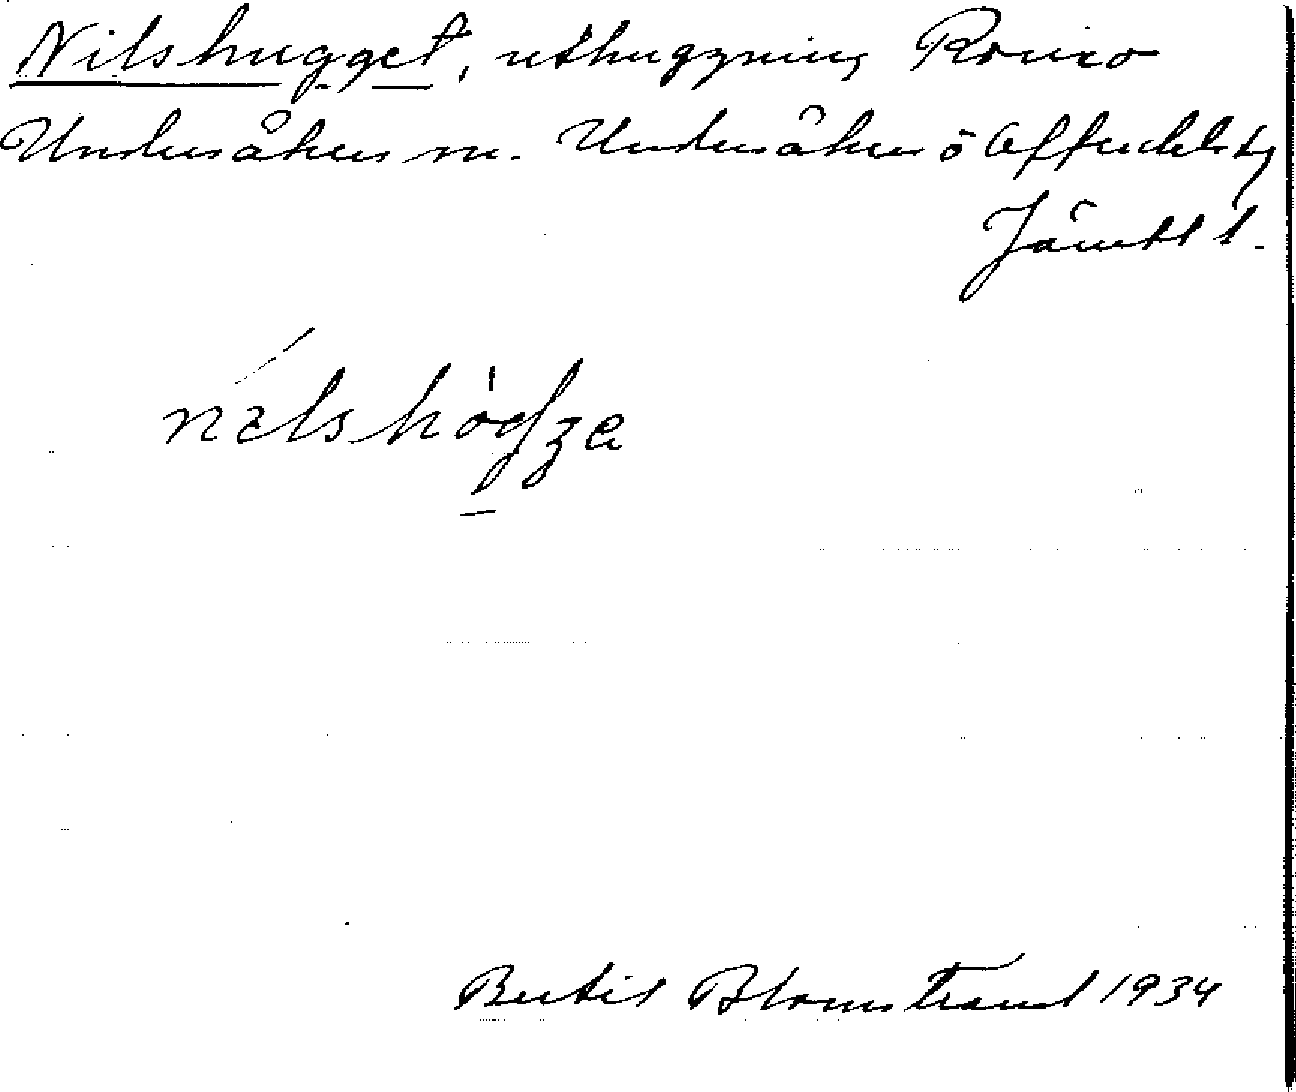 Nilshugget, uthuggning Romo
Undersåkers sn. Undersåkers o Offerdals tg
Jämtl l.
nılshögga
Bertil Blomstrand 1934